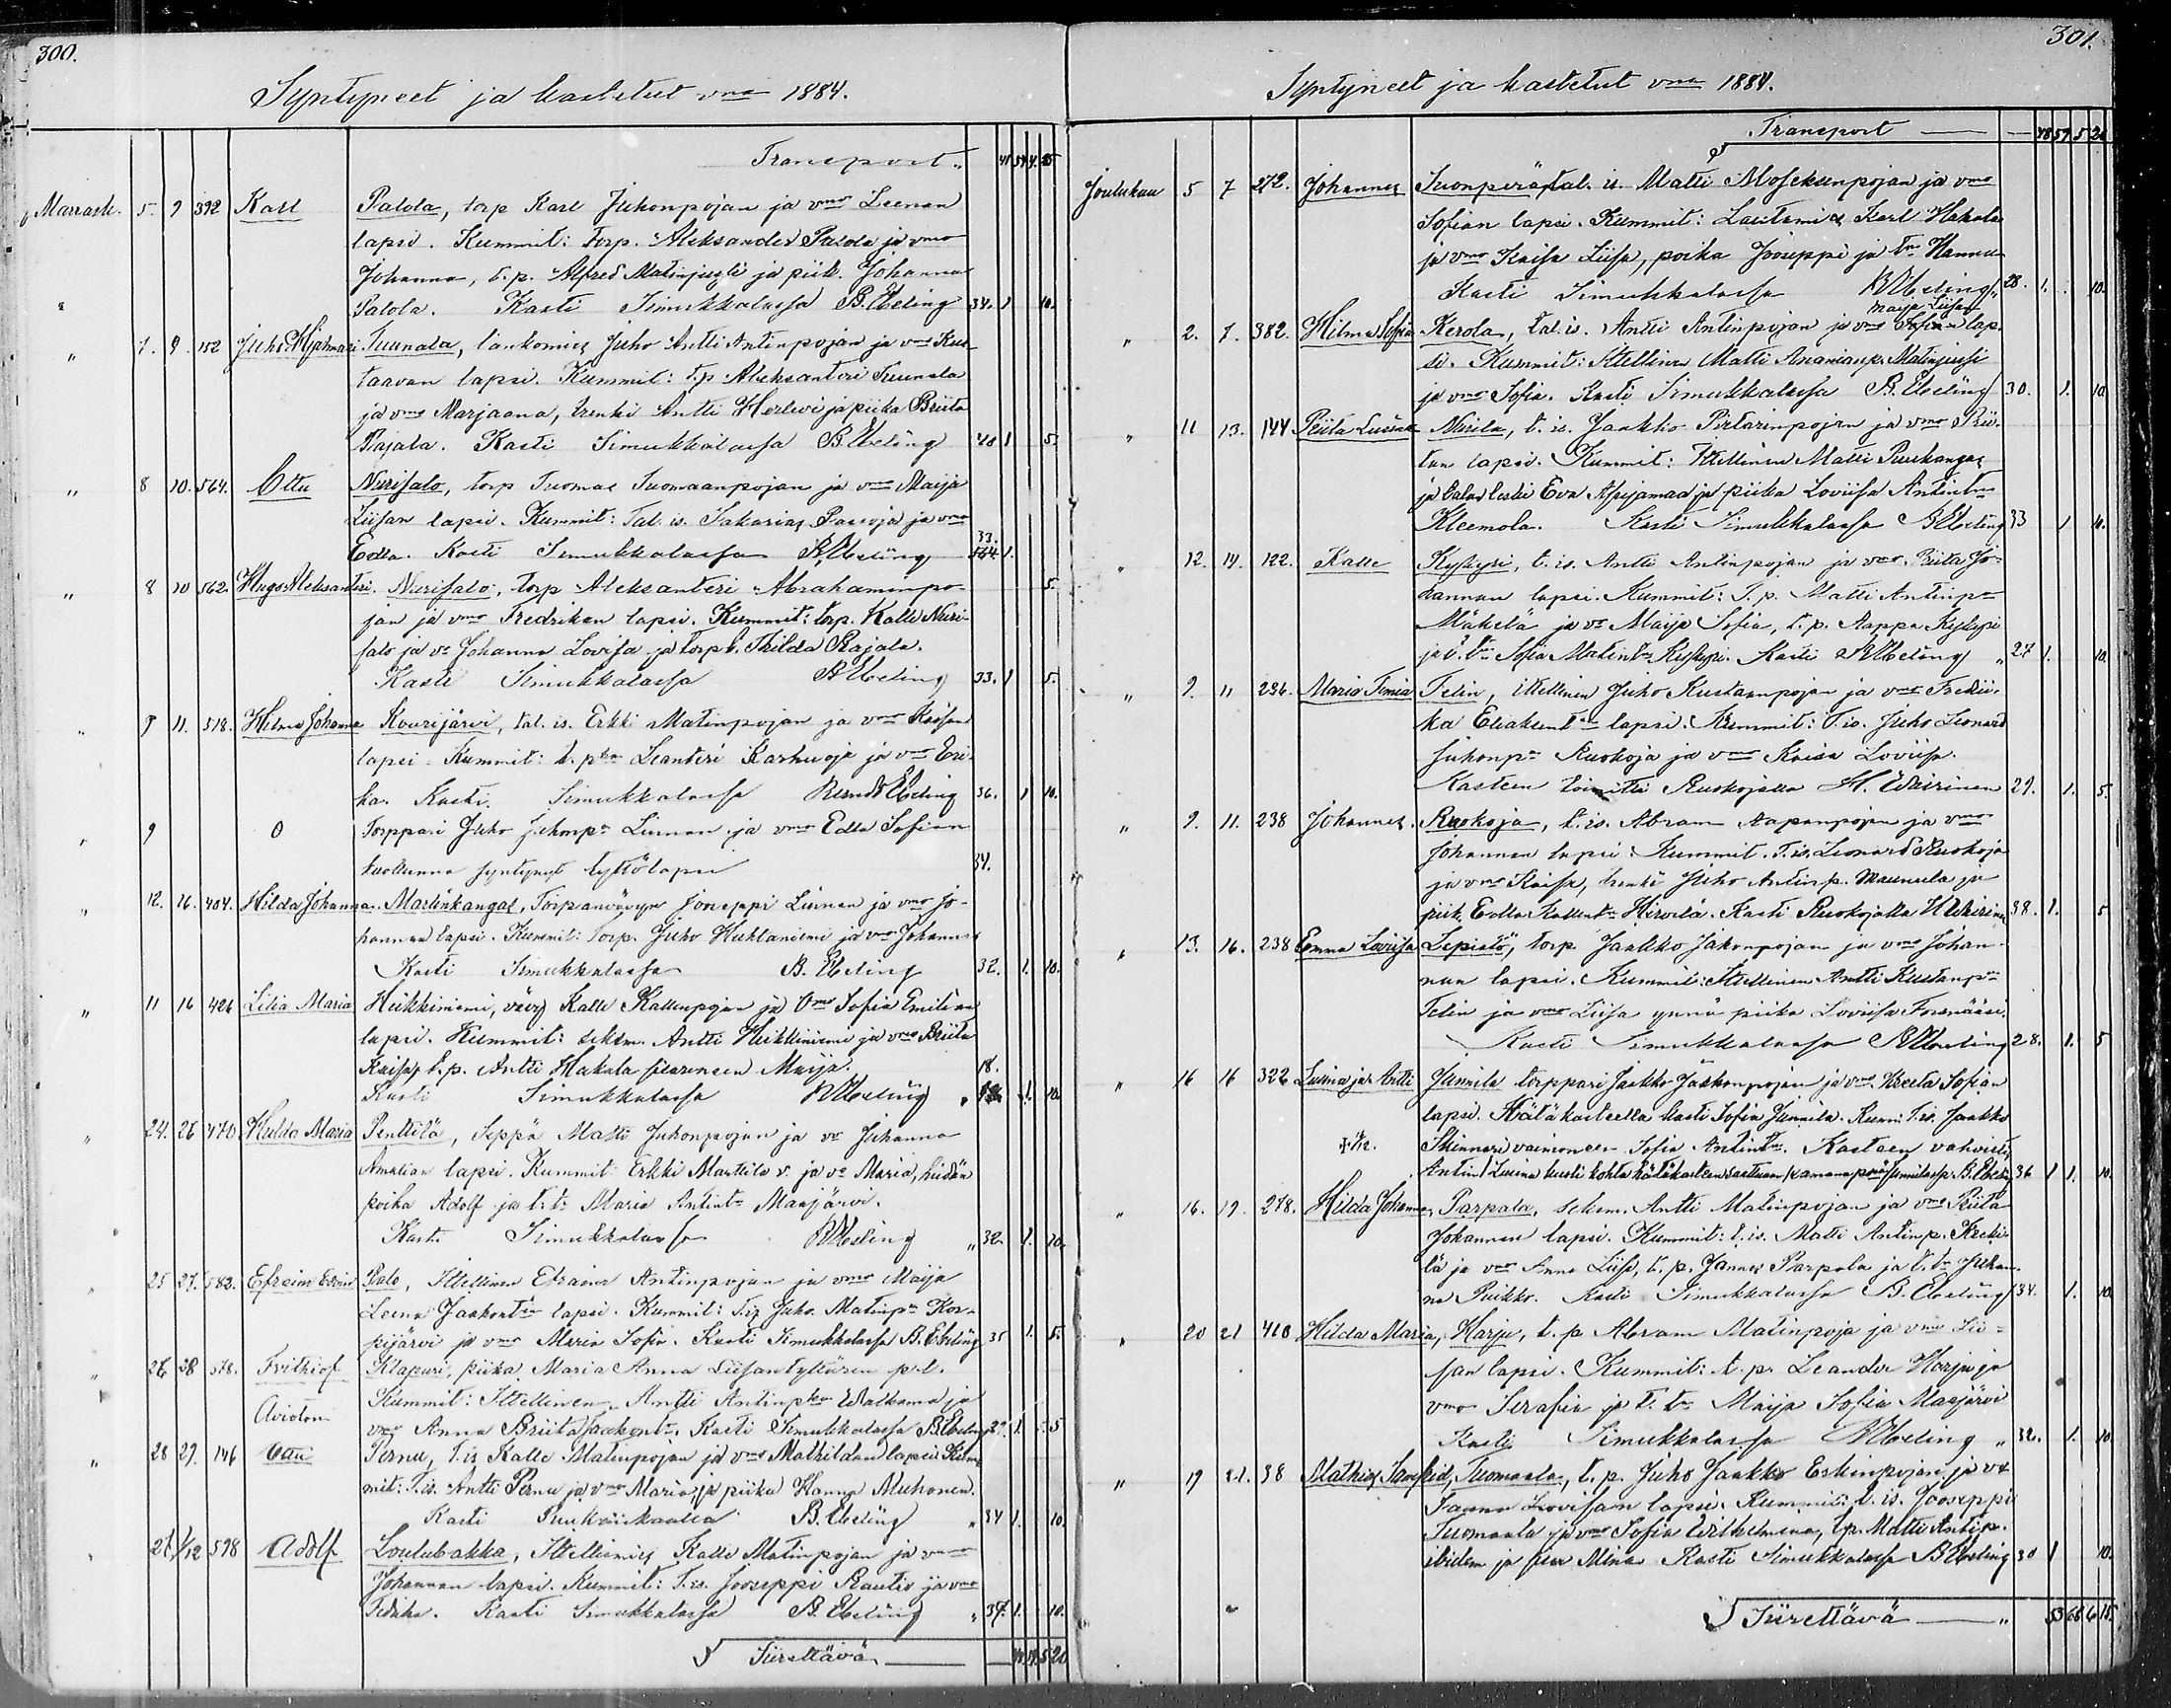 300.
Syntyneet ja kastetut vna 1884.
Transport
Marrask. 5. 9 392 Karl Palola, torp Karl Juhonpojan ja vmo Leenan
lapsi. Kummit: Torp. Aleksander Palola ja vmo
Johanna, t. p. Alfred Matinjussi ja piik. Johanna
Palola. Kasti Simukkalassa B. Ebeling 34. 1 10.
" 7. 9. 152 Juho Hjalmari Tuunala, lankomies Juho Antti Antinpojan ja vmo Kus-
taavan lapsi. Kummit: t. p. Aleksanteri Tuunala
ja vmo Marjaana, trenki Antti Herlevi ja piika Briita
Rajala. Kasti Simukkalassa B. Ebeling 40 1 5.
" 8 10. 564. Ottu Nurisalo, torp Tuomas Tuomaanpojan ja vmo Maija
Liisan lapsi. Kummit: Tal. is. Sakarias Pasoja ja vmo
Edla. Kasti Simukkalassa B. Ebeling 33. 1.
" 8 10 562. Hugo Aleksanteri. Nurisalo, torp Aleksanteri Abrahaminpo- 5.
jan ja vmo Fredrikan lapsi. Kummit: torp. Kalle Nuri-
salo ja vo Johanna Lovisa ja torp t. Thilda Rajala.
Kasti Simukkalassa B. Ebeling 33. 1 5.
" 9 11. 518. Hilma Johanna Kourijärvi, tal. is. Erkki Matinpojan ja vmo Kaisan
lapsi. Kummit: t. pka Leanteri Karhuoja ja vmo Eri-
ka. Kasti Simukkalassa Bernd. Ebeling 36. 1 10.
" 9 0 Torppari Juho Juhonpn Linnan ja vmo Edla Sofian
kuollunna syntynyt tyttölapsi 34.
" 12. 16. 404. Hilda Johanna. Martinkangas, Torpanvävyn Jooseppi Linnan ja vmo Jo-
hannan lapsi. Kummit: torp. Juho Huhtaniemi ja vmo Johanna
Kasti Simukkalassa B. Ebeling 32. 1. 10.
" 11 16 426 Lilia Maria Heikkiniemi, vävy Kalle Kallenpojan ja Vmo Sofia Emilian
lapsi. Kummit: seksm. Antti Heikkiniemi ja vmo Briita
Kaisa, t. p. Antti Hakala sisarensa Maija. 18.
Kasti Simukkalassa B. Ebeling 1. 10.
" 24. 26 470 Hulda Maria Penttilä, Seppä Matti Juhonpojan ja vo Juhanna
Amalian lapsi. Kummit: Erkki Marttila v. ja vo Maria, heidän
poika Adolf ja t. tr Maria Antintr Maajärvi.
Kasti Simukkalassa B. Ebeling 32. 1. 10.
" 25 27. 583. Efraim Edvard Palo, Itsellinen Efraim Antinpojan ja vmo Maija
Leena Jaakontr lapsi. Kummit: T. is Juho Matinpn Kor-
pijärvi ja vmo Maria Sofia. Kasti Simukkalassa B. Ebeling 35 1. 5.
" 26 28 578. Frithiof Klapuri, piika Maria Anna Liisantyttären p. l.
Avioton Kummit: Itsellinen Antti Antinpka Waltkama ja
vmo Anna Briita Jaakontr. Kasti Simukkalassa B. Ebeling 1. 5
" 28 29. 146 Otto Pernu, t. is Kalle Matinpojan ja vmo Mathildan lapsi Kum-
mit: T. is. Antti Pernu ja vmo Maria, ja piika Hanna Muhonen.
Kasti B. Ebeling 34 1. 10.
" 27 1/12 598 Adolf Loulubakka, Itsellismies Kalle Matinpojan ja vmo
Johannan lapsi. Kummit: T. is. Jooseppi Rautio ja vmo
Fedrika. Kasti Simukkalassa B. Ebeling 34. 1. 10.
Siirettävä

301.
Syntyneet ja kastetut vna 1884.
Transport 48 59 5 20
Joulukuu 5 7 272. Johannes Suonperä, tal. is. Matti Moseksenpojan ja vmo
Sofian lapsi. Kummit: Lautamies Karl Hakala
ja vmo Kaisa Liisa, poika Jooseppi ja tr Hanna
Kasti Simukkalassa B. Ebeling 28. 1. 10.
Maija Liisan
" 2. 7. 382. Hilma Sofia Kerola, tal. is. Antti Antinpojan ja vmo Sofian lap-
si. Kummit: Itsellinen Matti Ananianp. Matinjussi
ja vmo Sofia. Kasti Simukkalassa B. Ebeling 30. 1. 10
" 11 13. 144 Priita Nivila, t. is. Jaakko Pietarinpojan ja vmo Prii-
tan lapsi. Kummit: Itsellinen Matti Puukangas
ja talon leski Eva Apajamaa ja piika Loviisa Antintr
Kleemola. Kasti Simukkalassa B. Ebeling 33 1 10.
" 12. 14. 122. Kalle Kyykyri, t. is. Antti Antinpojan ja vmo Priita Jo-
hannan lapsi. Kummit: T. p. Matti Antinpn
Mäkelä ja vo Maija Sofia, t. p. Aappa Kyykyri
ja t. tr Sofia Matintr Kyykyri. Kasti B. Ebeling 27 1. 10.
" 9. 11 236. Maria Fenia Telin, itsellinen Juho Kustaanpojan ja vmo Fredrii-
ka Eliaksentr lapsi. Kummit: T. is. Juho Leonard
Juhonpn Ruokoja ja vmo Kaisa Loviisa.
Kasteen toimitti Ruokojalla H. Wäirinen 29. 1. 5.
" 9. 11. 238 Johannes. Ruokoja, t. is. Abram Aapanpojan ja vmo
Johannan lapsi. Kummit. T. is. Leonard Ruokoja
ja vmo Kaisa, trenki Juho Antinp. Maunula ja
piik. Edla Kallentr Hirvelä. Kasti Ruokojalla H Wäirinen 38. 1. 5
" 13. 16. 238 Emma Loviisa Lepistö, torp Jaakko Jakonpojan ja vmo Johan-
nan lapsi. Kummit: Itsellinen Antti Kustanpn
Telin ja vmo Liisa ynnä piika Loviisa Forsnääsi.
Kasti Simukkalassa B. Ebeling 28. 1. 5
" 16 16 322 Luina ja Antti Junnila torppari Jaakko Jaakonpojan ja vmo Kreeta Sofian
lapsi. Hätäkasteella kasti Sofia Junnila. Kumm: T. is. Jaakko
Skinnari vaimonsa Sofia Antintr. Kasteen vahvisti
Antin/Luina kuoli kohta hätäkasteen saatuaan/samana pnä/Junnilassa. B. Ebeling 36 1 1. 10.
" 16. 19. 278. Hilda Johanna, Parpala, seksm. Antti Matinpojan ja vmo Riita
Johannan lapsi. Kummit: t. is. Matti Antinp. Krekilä
lä ja vmo Anna Liisa, t. p. Jannes Parpala ja t. tr Juhan-
na Puikko. Kasti Simukkalassa B. Ebeling 34. 1. 10.
" 20 21 410 Hilda Maria, Harju, t. p Abram Matinpoja ja vmo Lii-
san lapsi. Kummit: t. p. Leander Harju ja
vmo Serafia ja t. tr Maija Sofia Maajärvi
Kasti Simukkalassa B. Ebeling 32. 1. 10
" 19 21. 38 Mathias Samfrid, Tuomaala, t. p. Juho Jaakko Erkinpojan ja vo
Sanna Lovisan lapsi. Kummit: t. is. Jooseppi
Tuomaala ja vmo Sofia Wilhelmina, t. p. Matti Antip.
ibidem ja sisar Mina Kasti Simukkalassa B Ebeling 30 1 10.
Siirettävä 53 66 6 15.